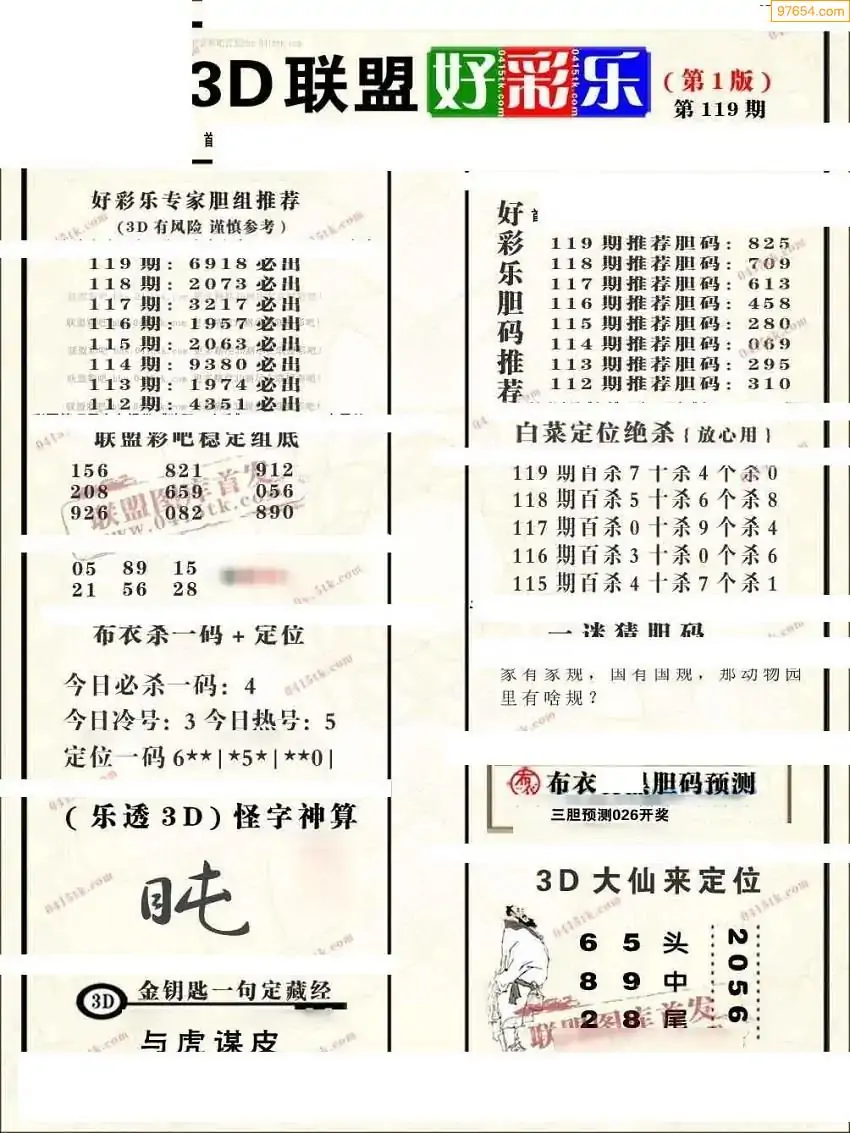 97654.com
3D联盟好彩乐(第1版)
第119期
首
好彩乐专家胆组推荐
(3D有风险 谨慎参考)
119期:6918必出
118期:2073必出
117期:3217必出
116期:1957必出
115期:2063必出
114期:9380必出
113期:1974必出
112期:4351必出
联盟彩吧稳定组底
156 821 912
208 659 056
926 082 890
联盟图库首发
www.0415tk.com
05 89 15
21 56 28
布衣杀一码+定位
今日必杀一码:4
今日冷号:3 今日热号:5
定位一码6**|*5*|**0|
(乐透3D)怪字神算
3D 金钥匙一句定藏经
与虎谋皮
好彩乐胆码推荐
119期推荐胆码:825
118期推荐胆码:709
117期推荐胆码:613
116期推荐胆码:458
115期推荐胆码:280
114期推荐胆码:069
113期推荐胆码:295
112期推荐胆码:310
白菜定位绝杀{放心用}
119期百杀7十杀4个杀0
118期百杀5十杀6个杀8
117期百杀0十杀9个杀4
116期百杀3十杀0个杀6
115期百杀4十杀7个杀1
一迷猜胆码
家有家规,国有国规,那动物园
里有啥规?
布衣 胆码预测
三胆预测026开奖
3D大仙来定位
6 5 头
8 9 中
2 8 尾
2056
联盟图库首发